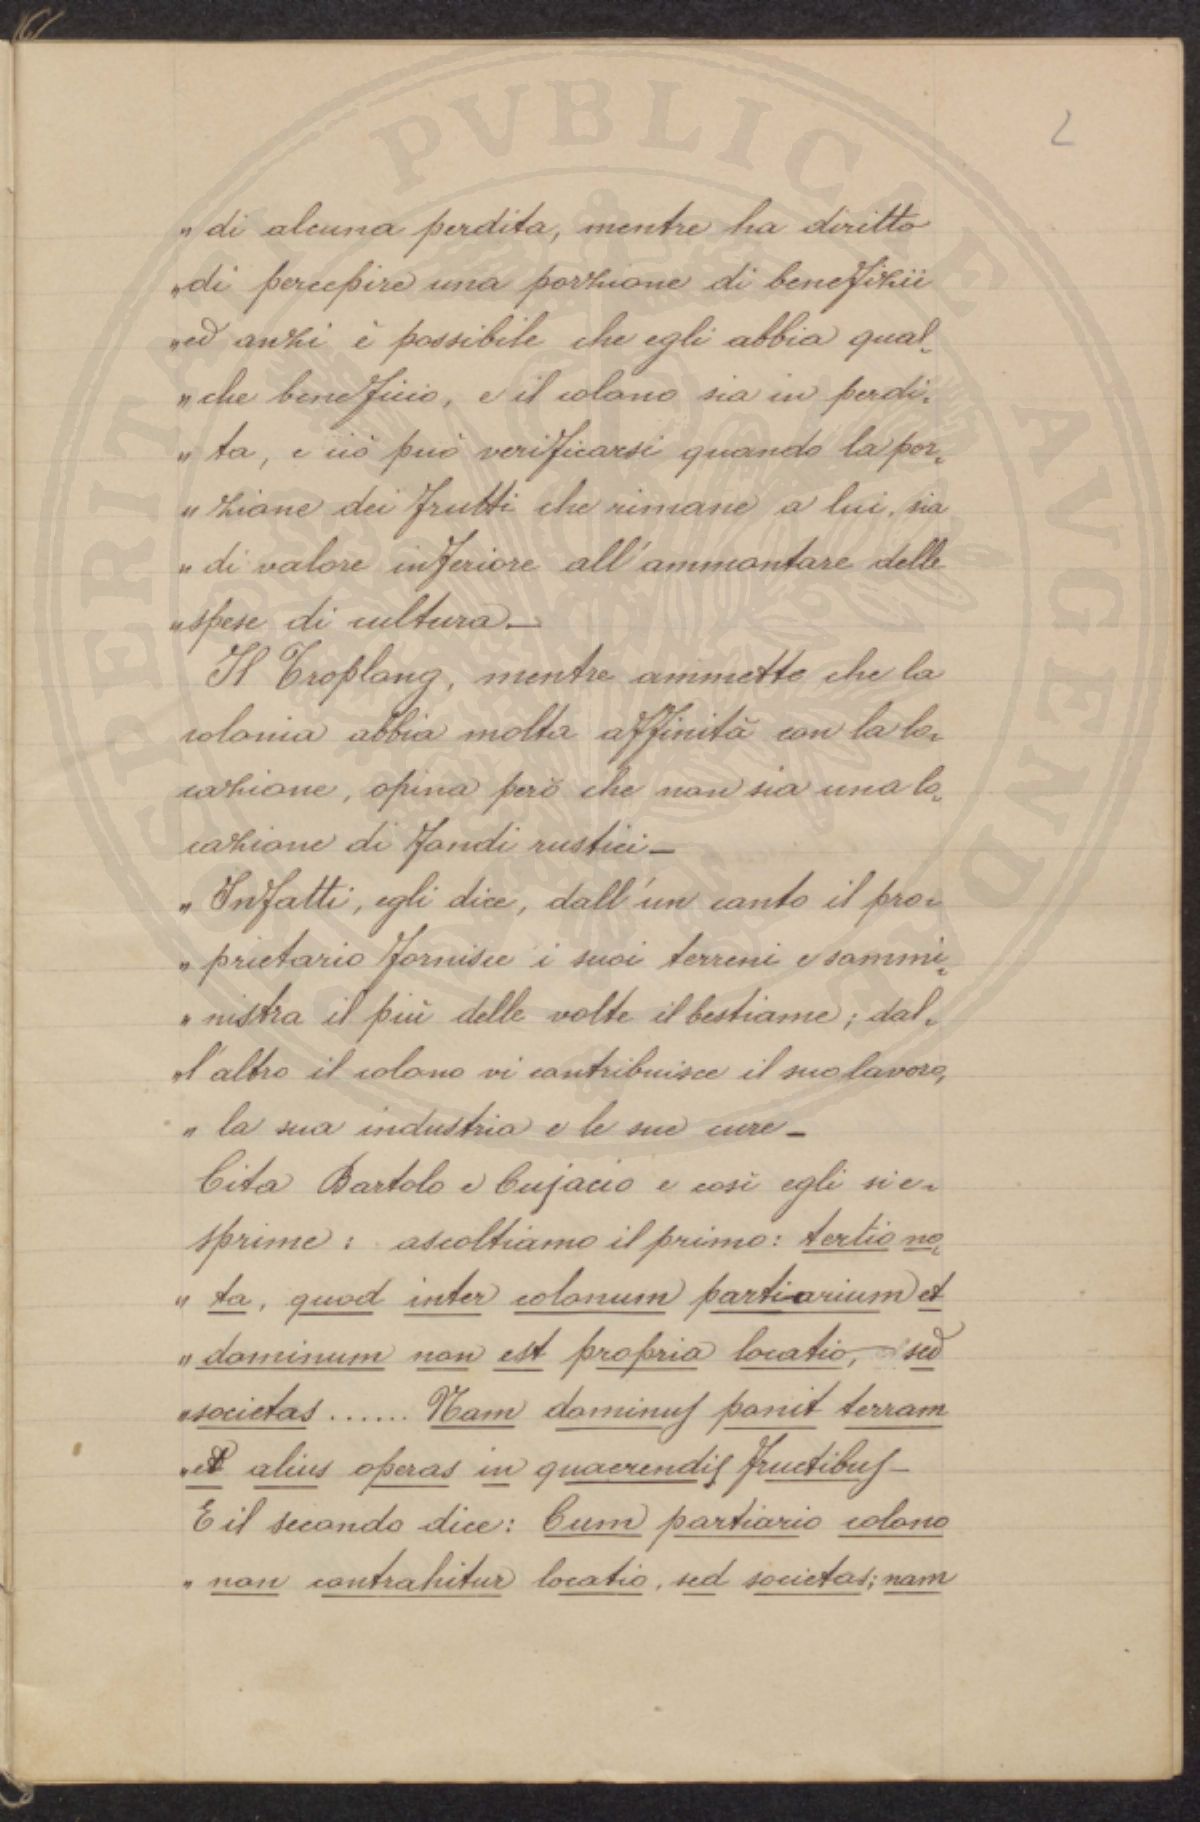 2
„ di alcuna perdita, mentre ha diritto
„ di percepire una porzione di benefizii
„ ed anzi è possibile che egli abbia qual-
„ che beneficio, e il colono sia in perdi-
„ ta, e ciò può verificarsi quando la por-
„ zione dei frutti che rimane a lui, sia
„ di valore inferiore all'ammontare delle
„ spese di cultura_
Il Troplong, mentre ammette che la
colonia abbia molta affinità con la lo-
cazione, opina però che non sia una lo-
cazione di fondi rustici_
„ Infatti, egli dice, dall'un canto il pro-
„ prietario fornisce i suoi terreni e sommi-
„ nistra il più delle volte il bestiame; dal-
„ l'altro il colono vi contribuisce il suo lavoro,
„ la sua industria e le sue cure_
Cita Bartolo e Cujacio e così egli si e-
sprime: ascoltiamo il primo: tertio no-
„ ta, quod inter colonum partiarium et
„ dominum non est propria locatio, sed
„ societas ...... Nam dominus ponit terram
„ et alius operas in quaerendis fructibus_
E il secondo dice: Cum partiario colono
„ non contrahitur locatio, sed societas; nam
PROSPERITATI PVBLICAE AVGENDAE